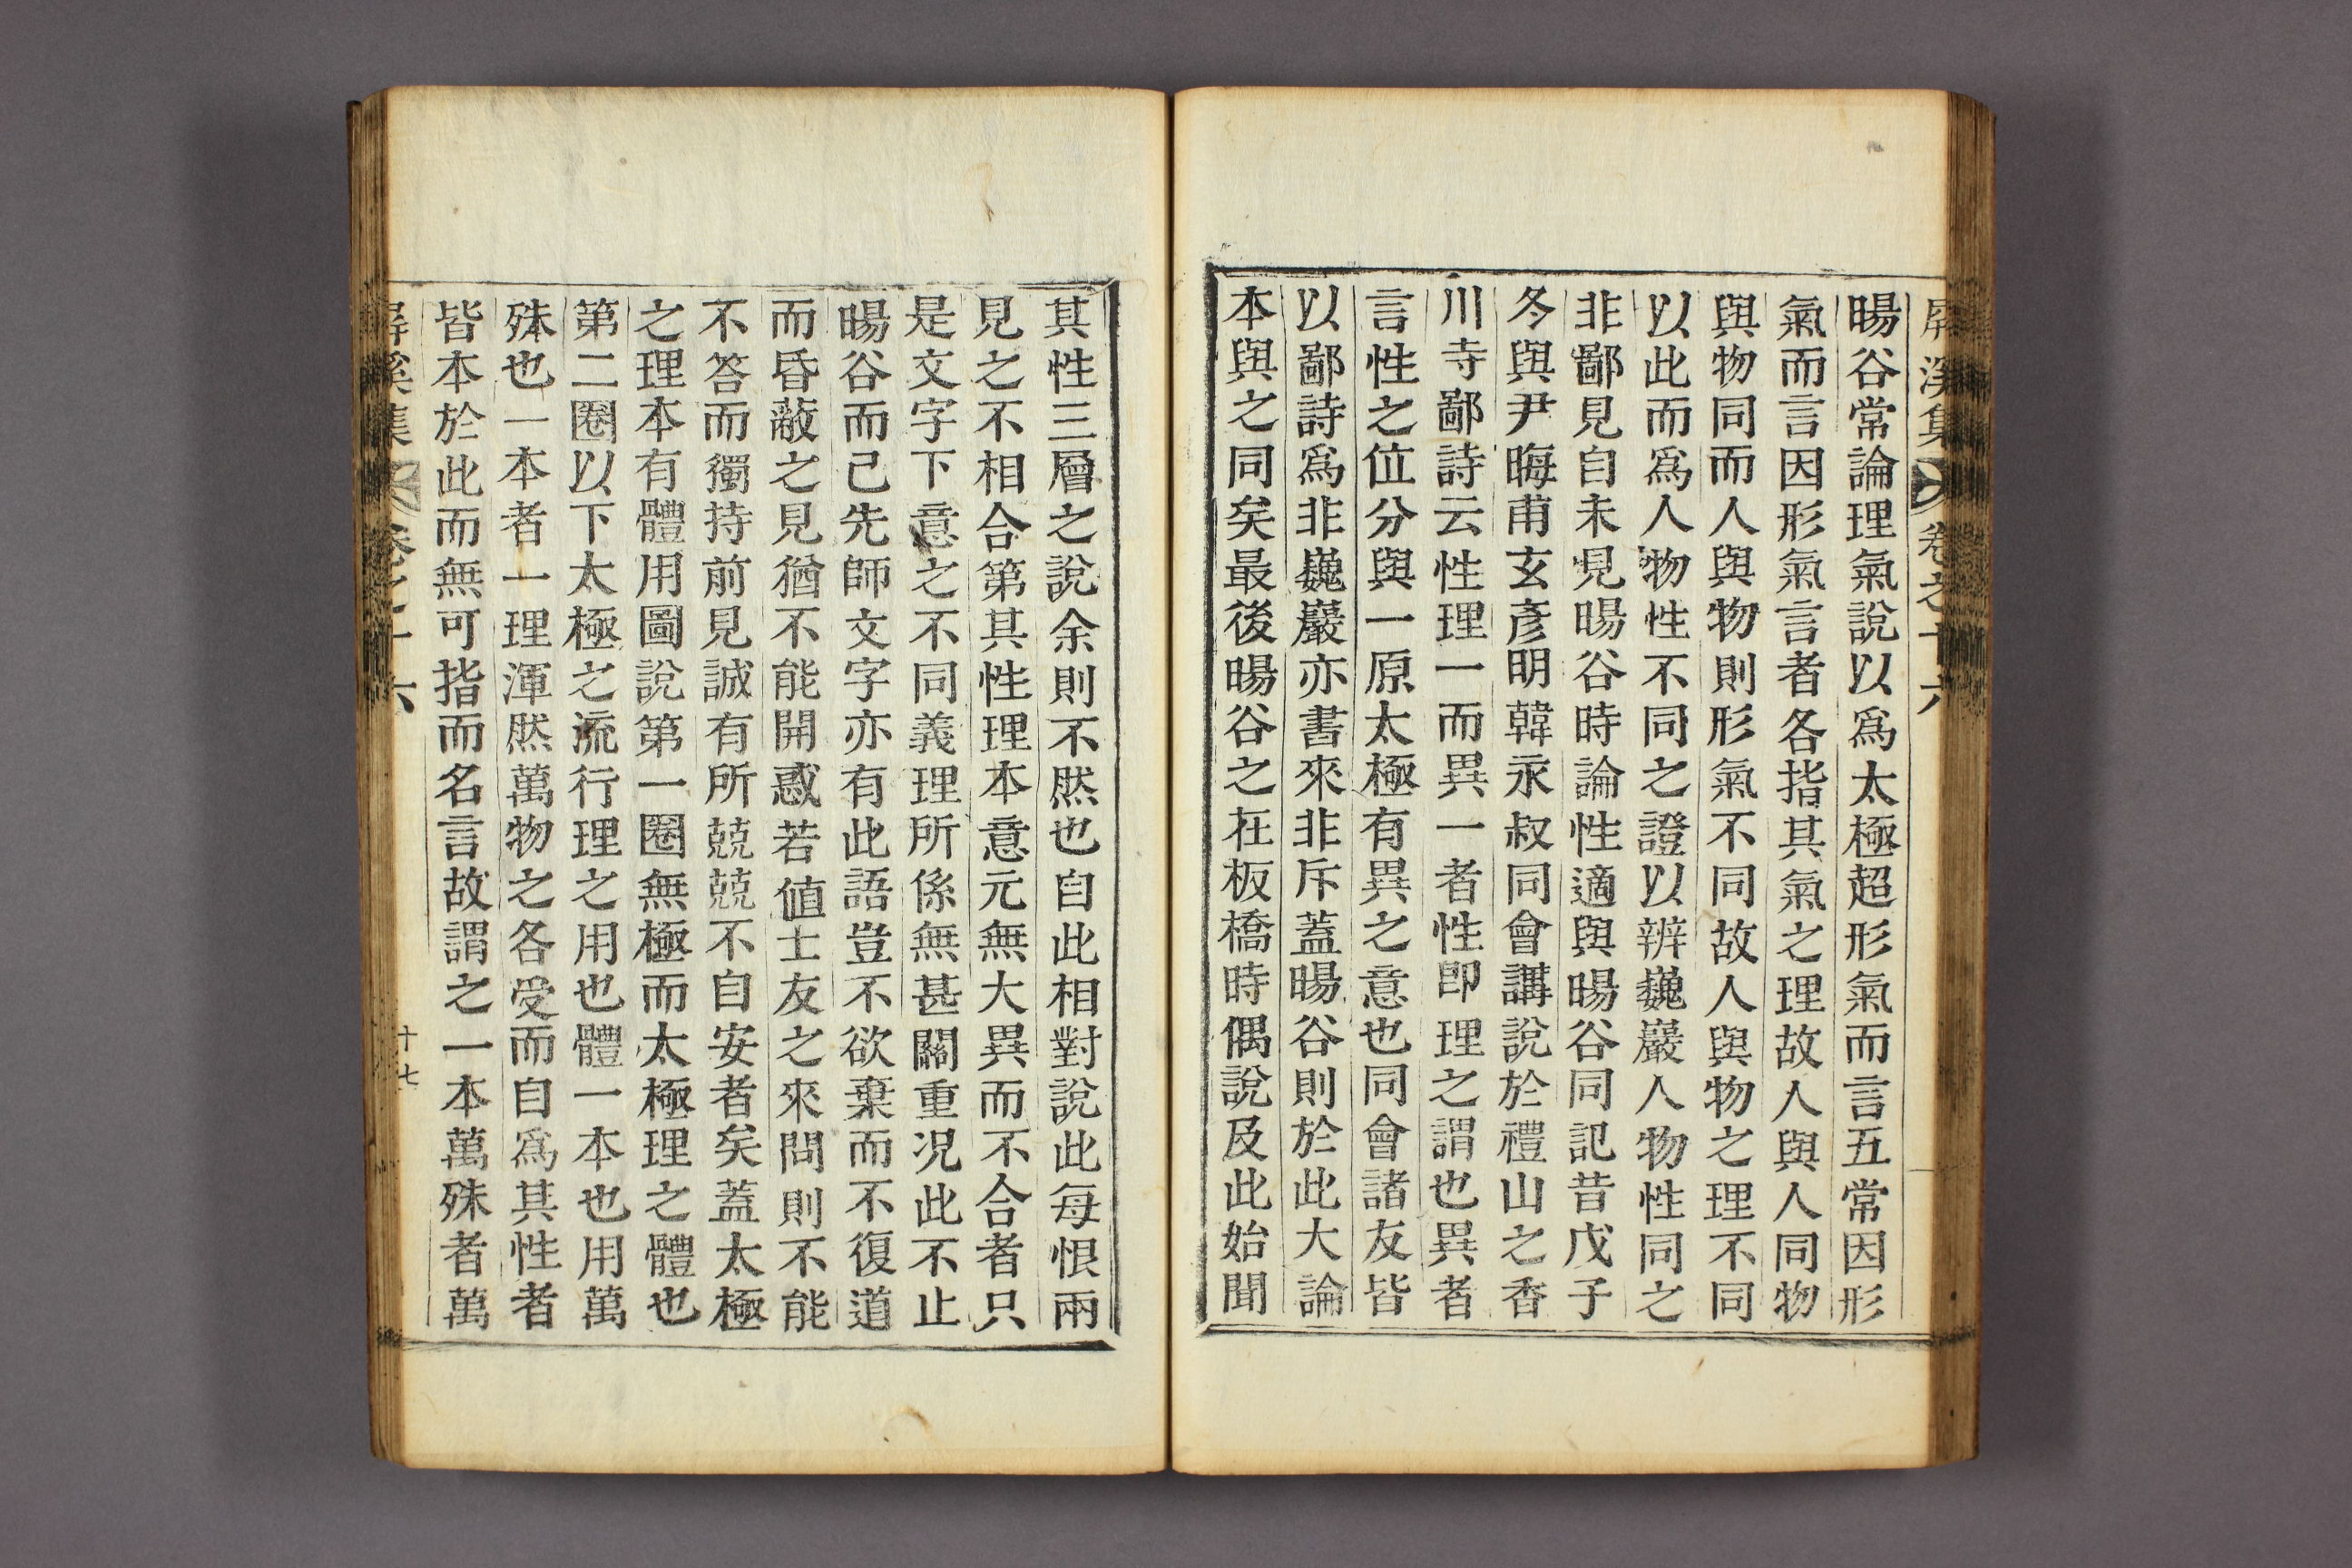 屛溪集 卷之十六
暘谷常論理氣說以爲太極超形氣而言五常因形
氣而言因形氣言者各指其氣之理故人與人同物
與物同而人與物則形氣不同故人與物之理不同
以此而爲人物性不同之證以辨巍巖人物性同之
非鄙見自未見暘谷時論性適與暘谷同記昔戊子
冬與尹晦甫玄彥明韓永叔同會講說於禮山之香
川寺鄙詩云性理一而異一者性卽理之謂也異者
言性之位分與一原太極有異之意也同會諸友皆
以鄙詩爲非巍巖亦書來非斥蓋暘谷則於此大論
本與之同矣最後暘谷之在板橋時偶說及此始聞
其性三層之說余則不然也自此相對說此每恨兩
見之不相合第其性理本意元無大異而不合者只
是文字下意之不同義理所係無甚關重況此不止
暘谷而已先師文字亦有此語豈不欲棄而不復道
而昏蔽之見猶不能開惑若値士友之來問則不能
不答而獨持前見誠有所兢兢不自安者矣蓋太極
之理本有體用圖說第一圈無極而太極理之體也
第二圈以下太極之流行理之用也體一本也用萬
殊也一本者一理渾然萬物之各受而自爲其性者
皆本於此而無可指而名言故謂之一本萬殊者萬
屛溪集 卷之十六 十七